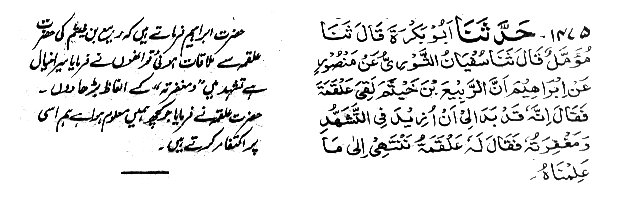 ۱۴۷۵۔ حَدَّثَنَا أَبُوْ بَكْرَةَ قَالَ ثَنَا
مُؤَمَّلٌ قَالَ ثَنَا سُفْيَانُ الثَّوْرِيُّ عَنْ مَنْصُوْرٍ
عَنْ اِبْرَاهِيْمَ اَنَّ الرَّبِيْعَ بْنَ خَيْثَمٍ لَقِيَ عَلْقَمَةَ
فَقَالَ اِنَّهٗ قَدْ بَدَا لِيْ اَنْ اَزِيْدَ فِي التَّشَهُّدِ
وَمَغْفِرَتُهٗ فَقَالَ لَهٗ عَلْقَمَةُ نَنْتَهِيْ اِلٰى مَا
عَلِمْنَاهُ۔
حضرت ابراہیم فرماتے ہیں کہ ربیع بن خیثم کی حضرت
علقمہ سے ملاقات ہوئی تو انھوں نے فرمایا میرا خیال
ہے تشہد میں "ومغفرتہ" کے الفاظ بڑھا دوں۔
حضرت علقمہ نے فرمایا جو کچھ ہمیں معلوم ہوا ہے ہم اسی
پر اکتفا کرتے ہیں۔